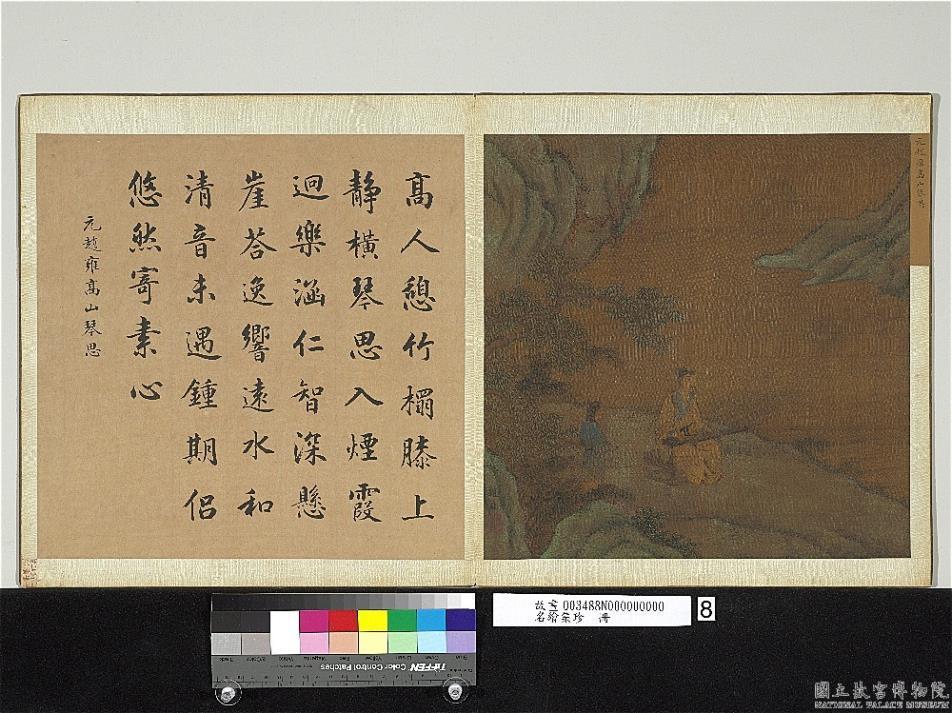 高人憩竹榻膝上
靜橫琴思入煙霞
迥樂涵仁智深懸
崖荅逸響遠水和
清音未遇鍾期侶
悠然寄素心
元趙雍高山琴思
元趙雍高山琴思
故畫003488N000000000
名繪集珍 冊
8
TIFFEN Color Control Patches
國立故宮博物院
NATIONAL PALACE MUSEUM